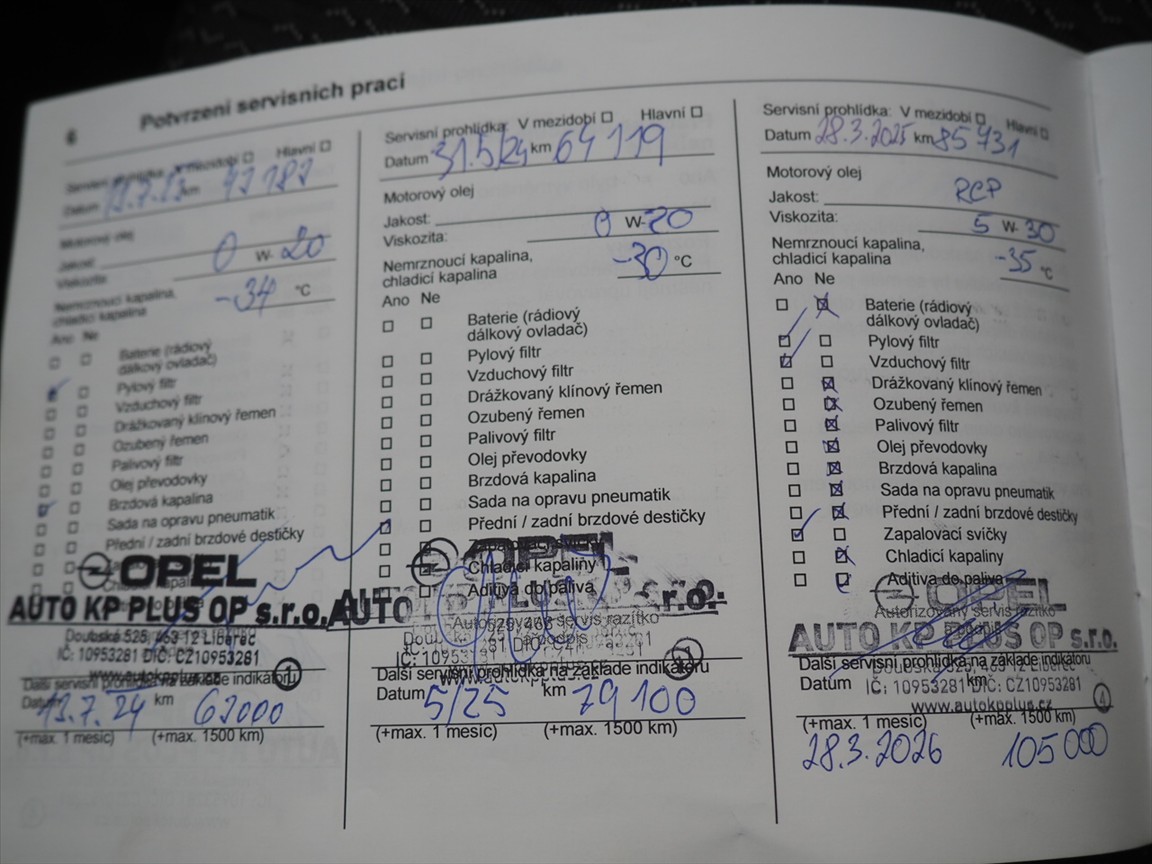 6 Potvrzení servisních prací
Servisní prohlídka: V mezidobí Hlavní
Datum 13.7.23 km
Motorový olej
Jakost:
Viskozita: 0 W- 20
Nemrznoucí kapalina,
chladicí kapalina -34 °C
Ano Ne
Baterie (rádiový
dálkový ovladač)
Pylový filtr
Vzduchový filtr
Drážkovaný klínový řemen
Ozubený řemen
Palivový filtr
Olej převodovky
Brzdová kapalina
Sada na opravu pneumatik
Přední / zadní brzdové destičky
OPEL
AUTO KP PLUS OP s.r.o.
Doubská 525, 463 12 Liberec
IČ: 10953281 DIČ: CZ10953281
www.autokpplus.cz
Další servisní prohlídka na základe indikátoru
Datum 13.7.24 km 62000
(+max. 1 mesíc) (+max. 1500 km)
Servisní prohlídka: V mezidobí Hlavní
Datum 31.5/24 km 64 119
Motorový olej
Jakost:
Viskozita: 0 W- 20
Nemrznoucí kapalina,
chladicí kapalina -30 °C
Ano Ne
Baterie (rádiový
dálkový ovladač)
Pylový filtr
Vzduchový filtr
Drážkovaný klínový řemen
Ozubený řemen
Palivový filtr
Olej převodovky
Brzdová kapalina
Sada na opravu pneumatik
Přední / zadní brzdové destičky
Zapalovací svíčky
Chladicí kapaliny
Aditiva do paliva
OPEL
AUTO KP PLUS OP s.r.o.
Autorizovaný servis razítko
Datum 5/25 km 79 100
Další servisní prohlídka na základe indikátoru
(+max. 1 mesíc) (+max. 1500 km)
Servisní prohlídka: V mezidobí Hlavní
Datum 28.3.2025 km 85 431
Motorový olej
Jakost: RCP
Viskozita: 5 W- 30
Nemrznoucí kapalina,
chladicí kapalina -35 °C
Ano Ne
Baterie (rádiový
dálkový ovladač)
Pylový filtr
Vzduchový filtr
Drážkovaný klínový řemen
Ozubený řemen
Palivový filtr
Olej převodovky
Brzdová kapalina
Sada na opravu pneumatik
Přední / zadní brzdové destičky
Zapalovací svíčky
Chladicí kapaliny
Aditiva do paliva
OPEL
Autorizovaný servis razítko
AUTO KP PLUS OP s.r.o.
Další servisní prohlídka na základe indikátoru
Datum km
IČ: 10953281 DIČ: CZ10953281
www.autokpplus.cz 4
(+max. 1 mesíc) (+max. 1500 km)
28.3.2026 105 000